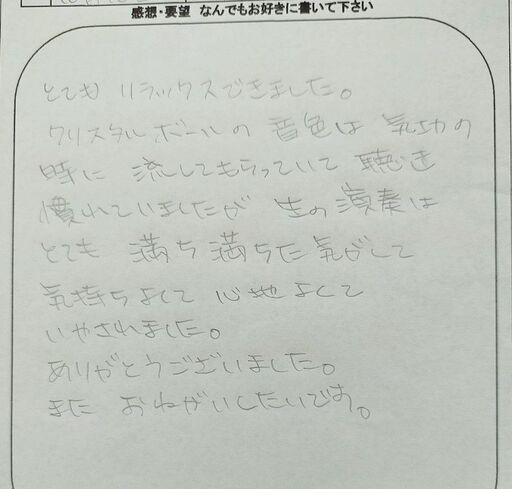 感想・要望 なんでもお好きに書いて下さい
とても リラックスできました。
クリスタルボールの 音色は 気功の
時に 流してもらっていて 聴き
慣れていましたが 生の演奏は
とても 満ち満ちた気がして
気持ちよくて 心地よくて
いやされました。
ありがとうございました。
また おねがいしたいです。